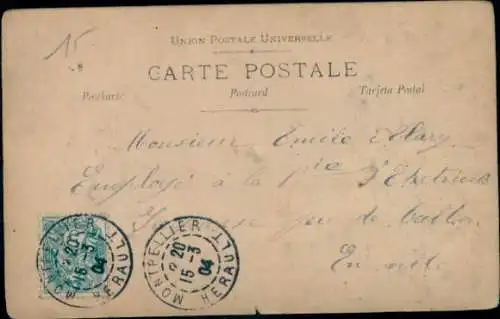 15
UNION POSTALE UNIVERSELLE
CARTE POSTALE
Postkarte Postcard Tarjeta Postal
Monsieur Emile
Employé à la
jeu de ballon
En ville
MONTPELLIER HERAULT 20 15 -3 04
MONTPELLIER HERAULT 20 15 -3 04